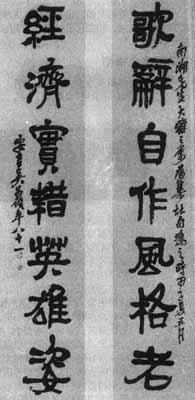 歌辭自作風格老
南湖先生大雅之屬集杜句應之時甲子
經濟實藉英雄姿
安吉吳昌碩年八十一